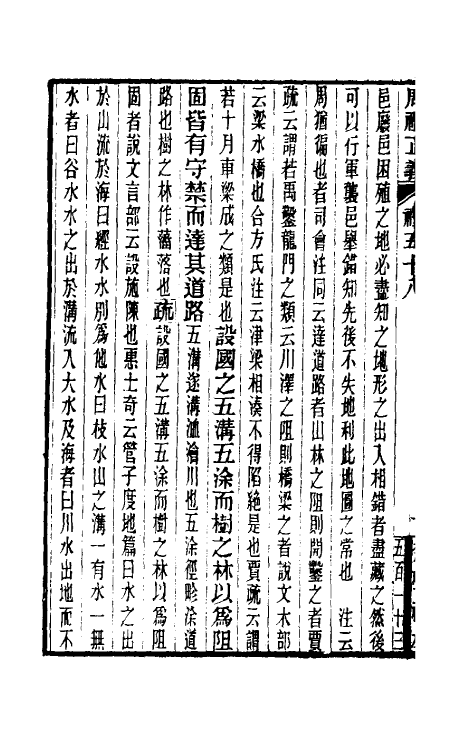 周禮正義 禮五十八 五百一十三
邑廢邑困殖之地必盡知之地形之出入相錯者盡藏之然後
可以行軍襲邑舉錯知先後不失地利此地圖之常也 注云
周猶徧也者司會注同云達道路者山林之阻則開鑿之者賈
疏云謂若禹鑿龍門之類云川澤之阻則橋梁之者說文木部
云梁水橋也合方氏注云津梁相湊不得陷絶是也賈疏云謂
若十月車梁成之類是也設國之五溝五涂而樹之林以爲阻
固皆有守禁而達其道路五溝遂溝洫澮川也五涂徑畛涂道
路也樹之林作藩落也疏設國之五溝五涂而樹之林以爲阻
固者說文言部云設施陳也惠士奇云管子度地篇曰水之出
於山流於海曰經水水別爲他水曰枝水山之溝一有水一無
水者曰谷水水之出於溝流入大水及海者曰川水出地而不